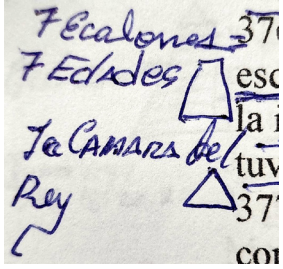 7 Ecalones =
7 Edades
La CAMARA del
Rey
37
esc
la
tuv
37